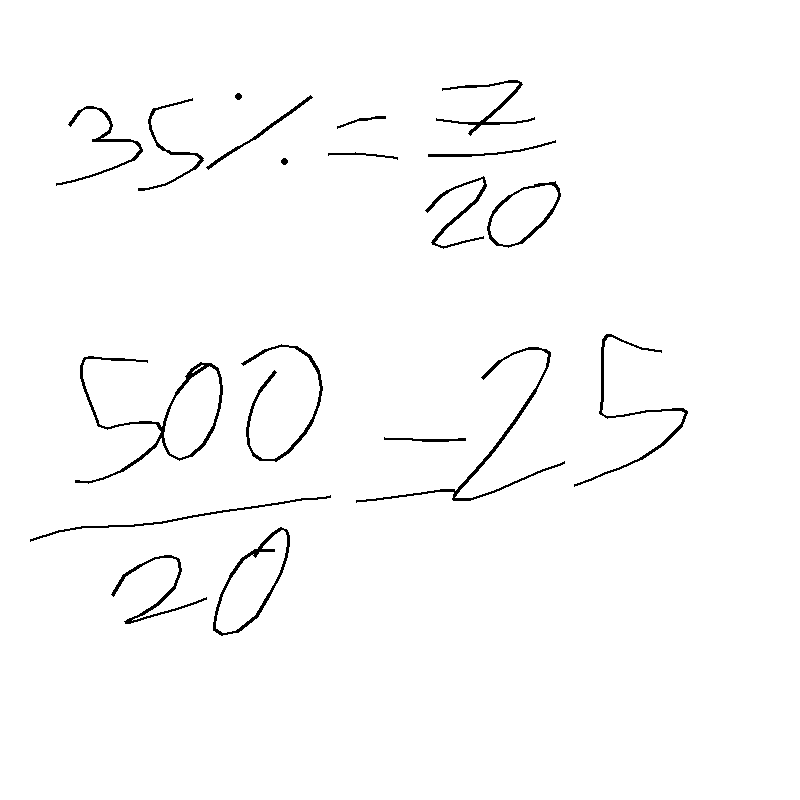 35% = 7/20
500/20 = 25